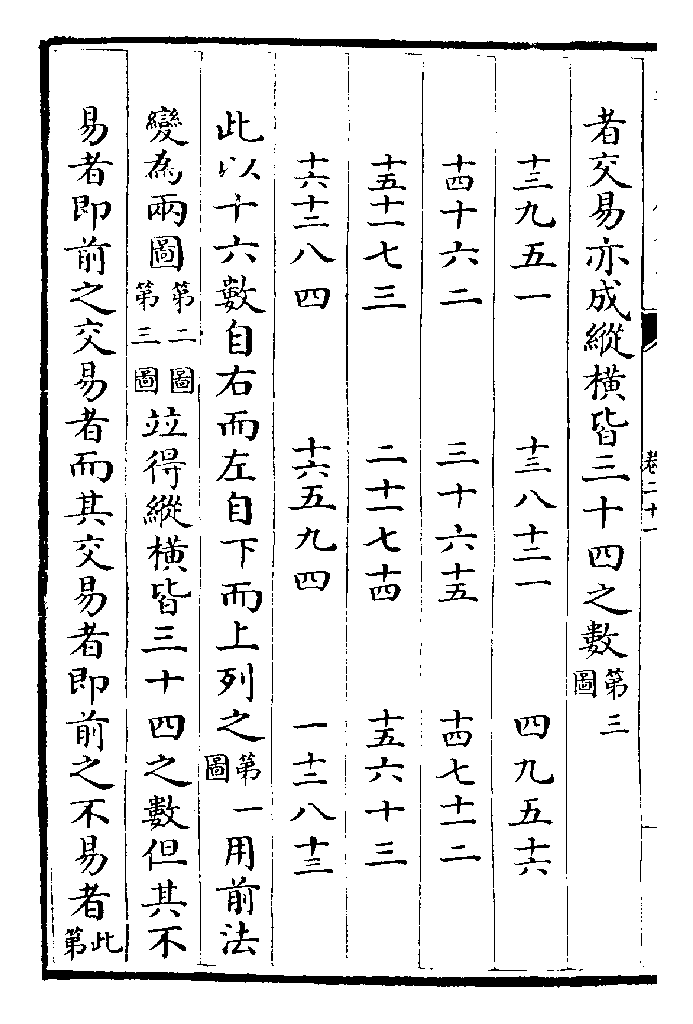 卷二十一
者交易亦成縱橫皆三十四之數第三圖
十三九五一 十三八十二一 四九五十六
十四十六二 三十六十五 十四七十一二
十五十一七三 二十一七十四 十五六十三
十六十二八四 十六五九四 一十二八十三
此以十六數自右而左自下而上列之第一圖用前法
變為兩圖第二圖第三圖竝得縱橫皆三十四之數但其不
易者即前之交易者而其交易者即前之不易者此第